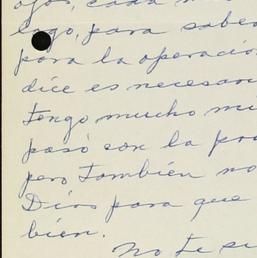 ojos, cada
lago, para saber
para la operación
dice es necesari
tengo mucho mi
pasó con la pr
pero también no
Dios para que
bien.
No te